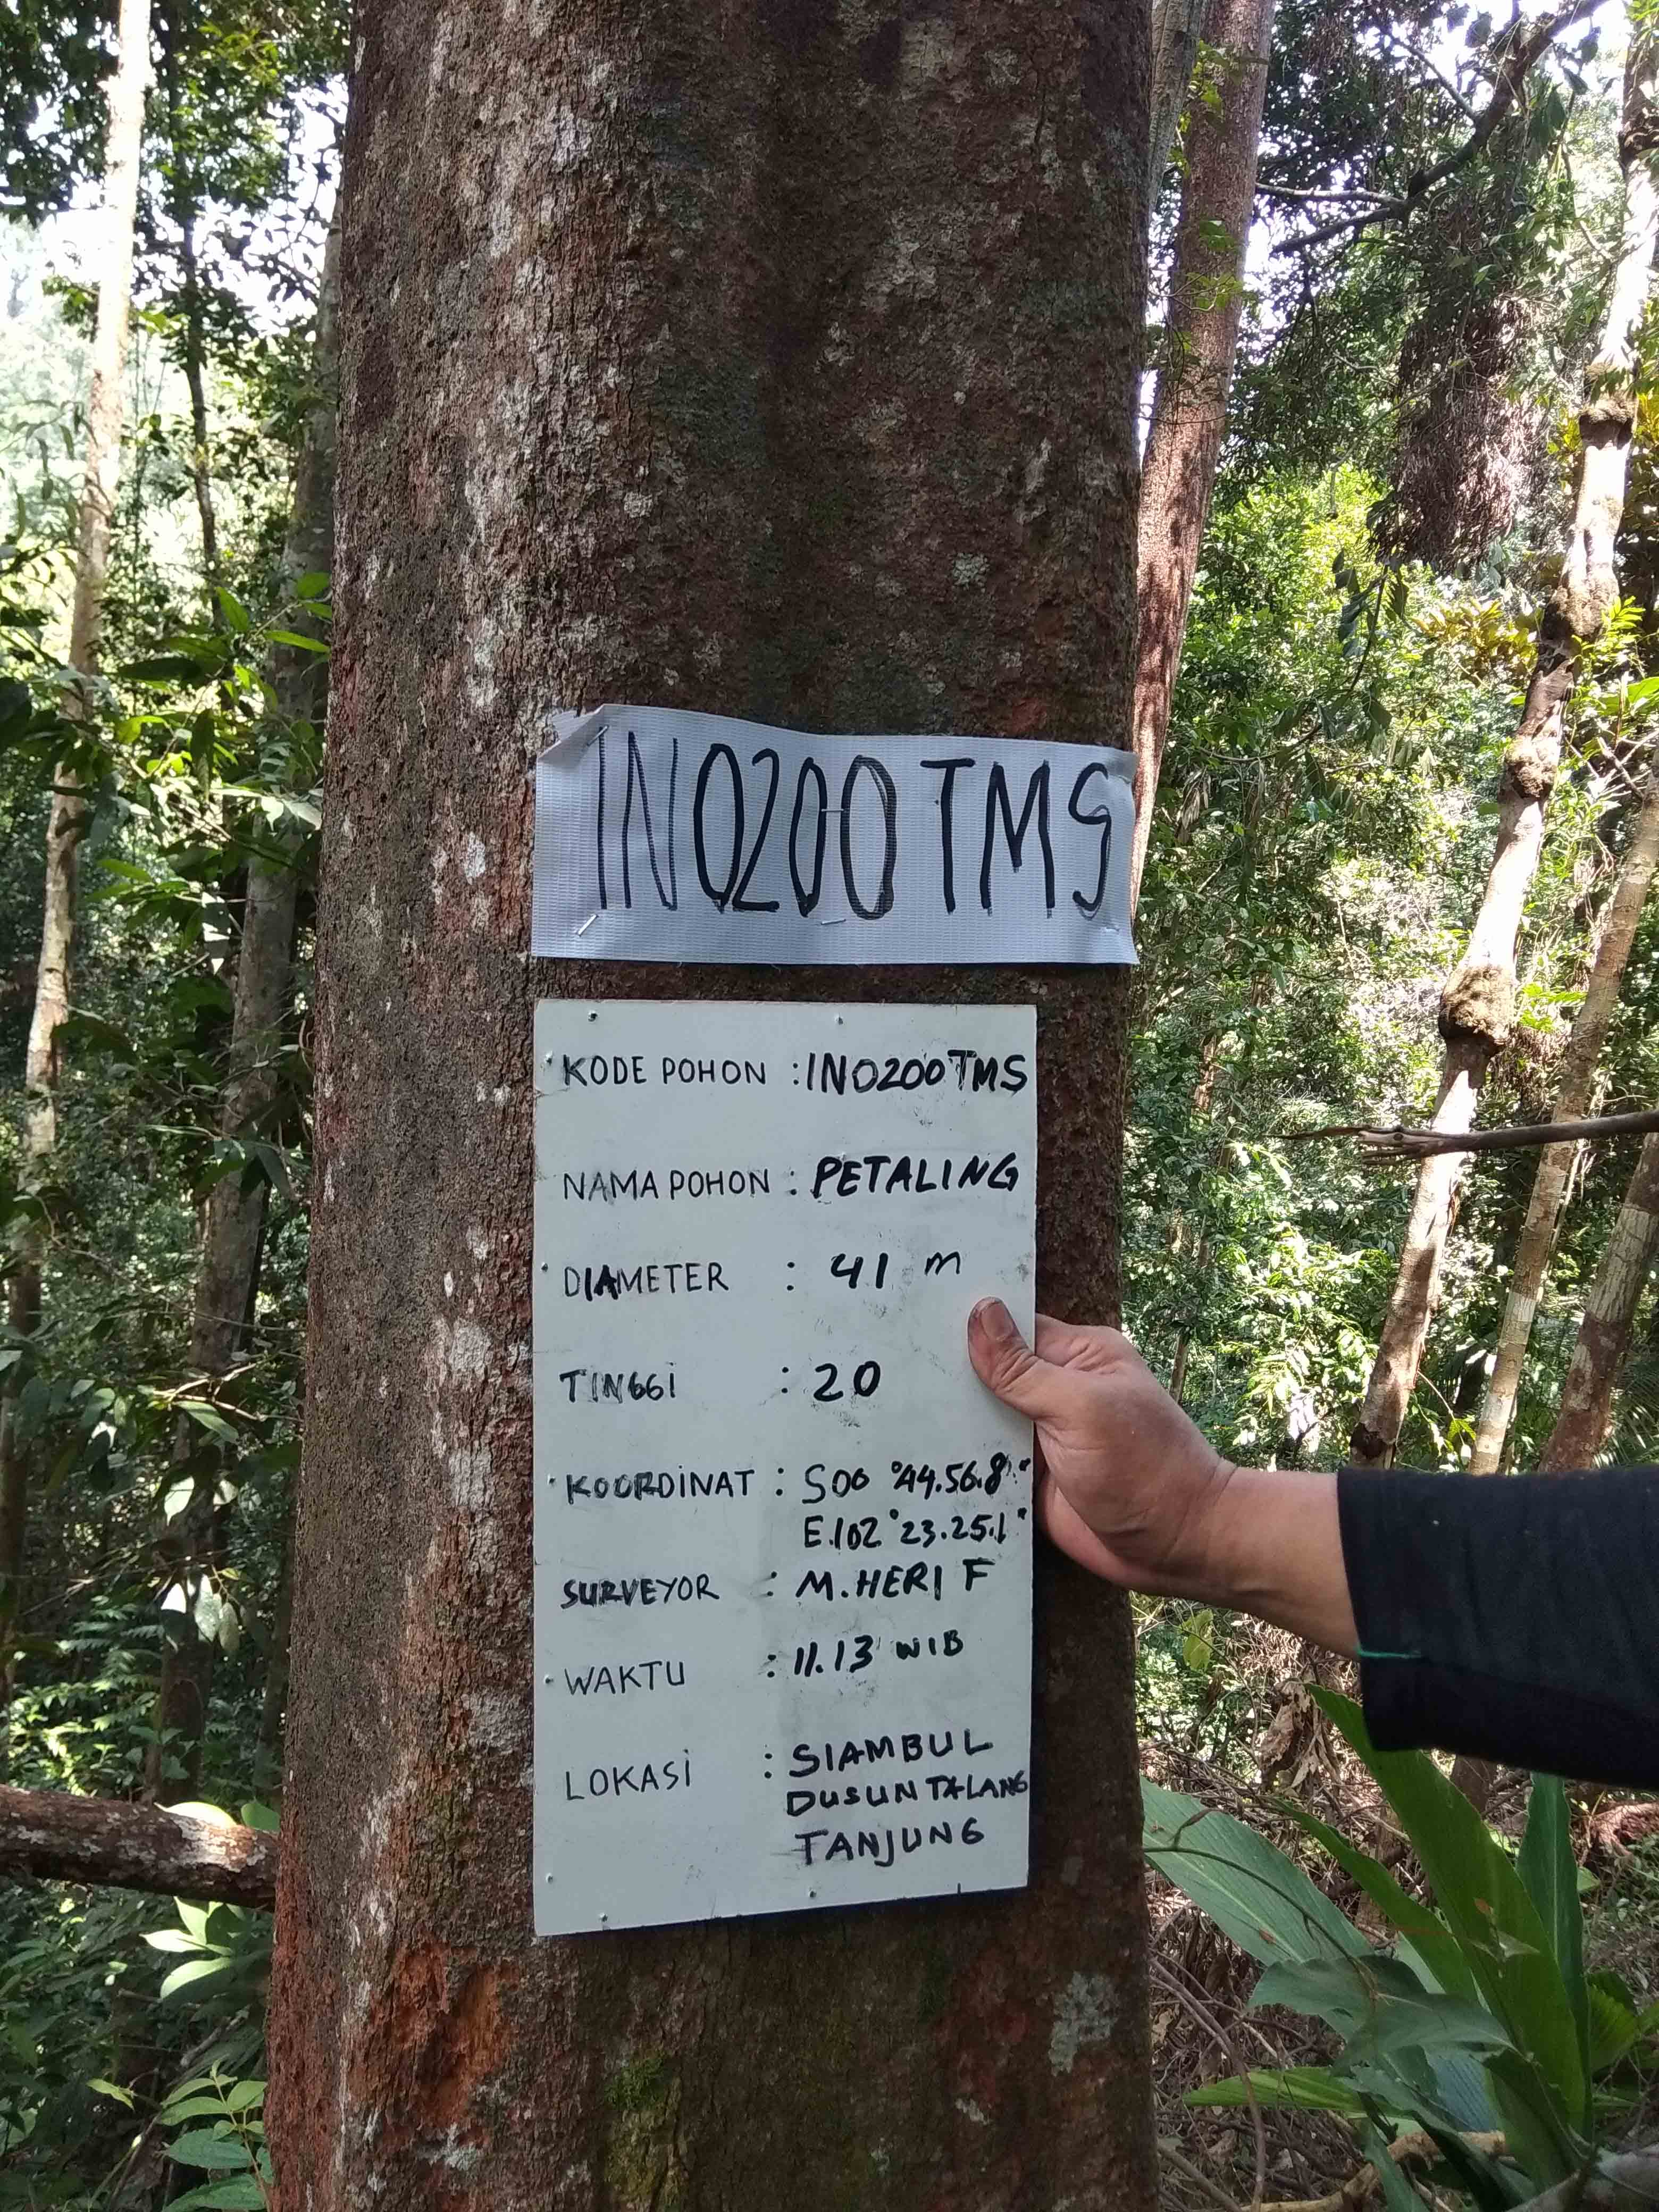 IN0200 TMS
KODE POHON : IN0200TMS
NAMA POHON : PETALING
DIAMETER : 41 m
TINGGI : 20
KOORDINAT : S00 °44.56.8"
E.102 °23.25.1"
SURVEYOR : M.HERI F
WAKTU : 11.13 WIB
LOKASI : SIAMBUL
DUSUN TALANG
TANJUNG